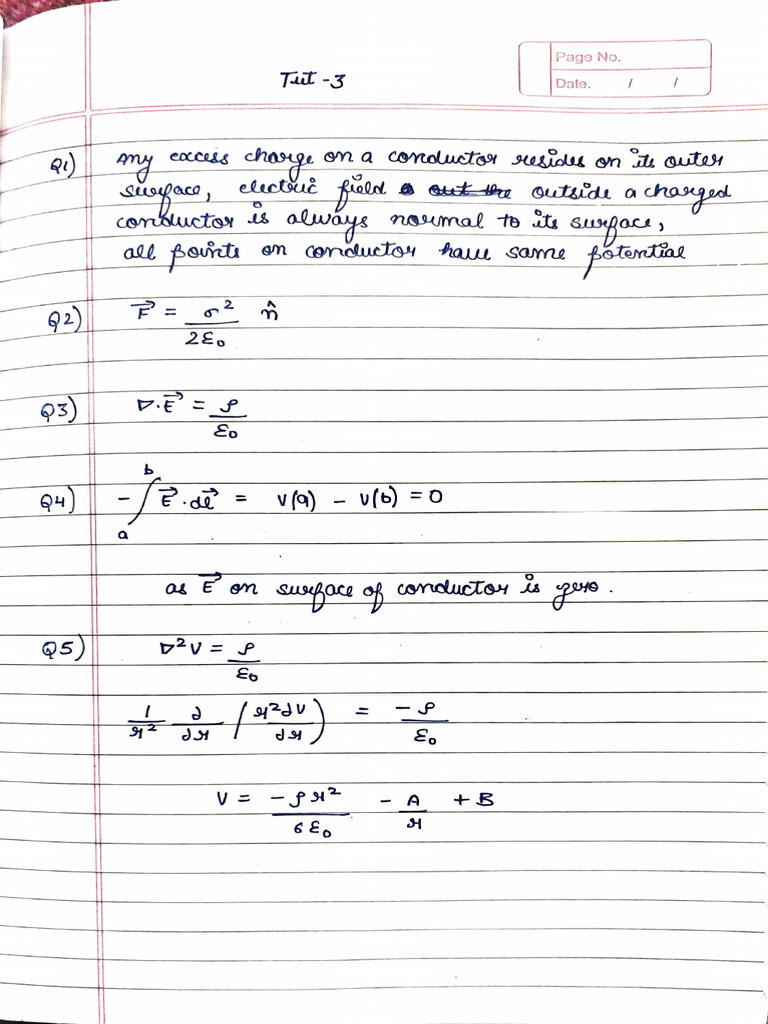 Tut - 3
Page No.
Date. / /
Q1) Any excess charge on a conductor resides on its outer
surface, electric field outside a charged
conductor is always normal to its surface,
all points on conductor have same potential
Q2) F⃗ = σ²/2ε₀ n̂
Q3) ∇.E⃗ = ρ/ε₀
Q4) - ∫ₐᵇ E⃗ . dl⃗ = V(a) - V(b) = 0
as E⃗ on surface of conductor is zero.
Q5) ∇²V = ρ/ε₀
1/r² ∂/∂r (r²∂V/∂r) = -ρ/ε₀
V = -ρr²/6ε₀ - A/r + B